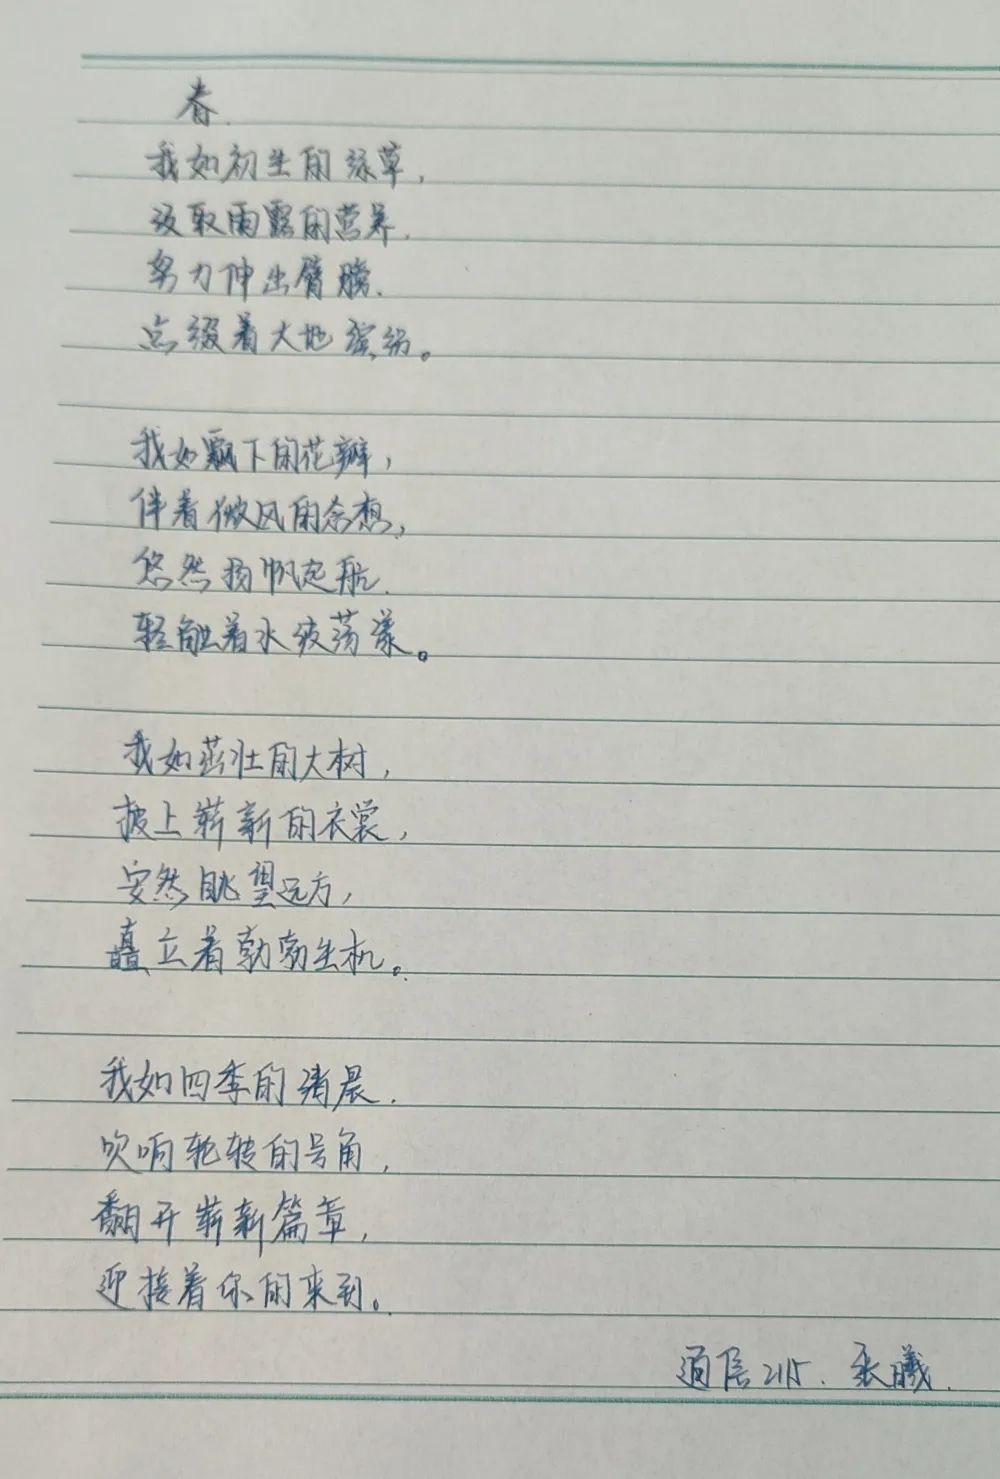 春
我如初生的绿草，
汲取雨露的营养，
努力伸出臂膀，
点缀着大地缤纷。
我如飘下的花瓣，
伴着微风的念想，
悠然扬帆起航，
轻触着水波荡漾。
我如茁壮的大树，
披上崭新的衣裳，
安然眺望远方，
矗立着勃勃生机。
我如四季的清晨，
吹响轮转的号角，
翻开崭新篇章，
迎接着你的来到。
通信215. 张曦.